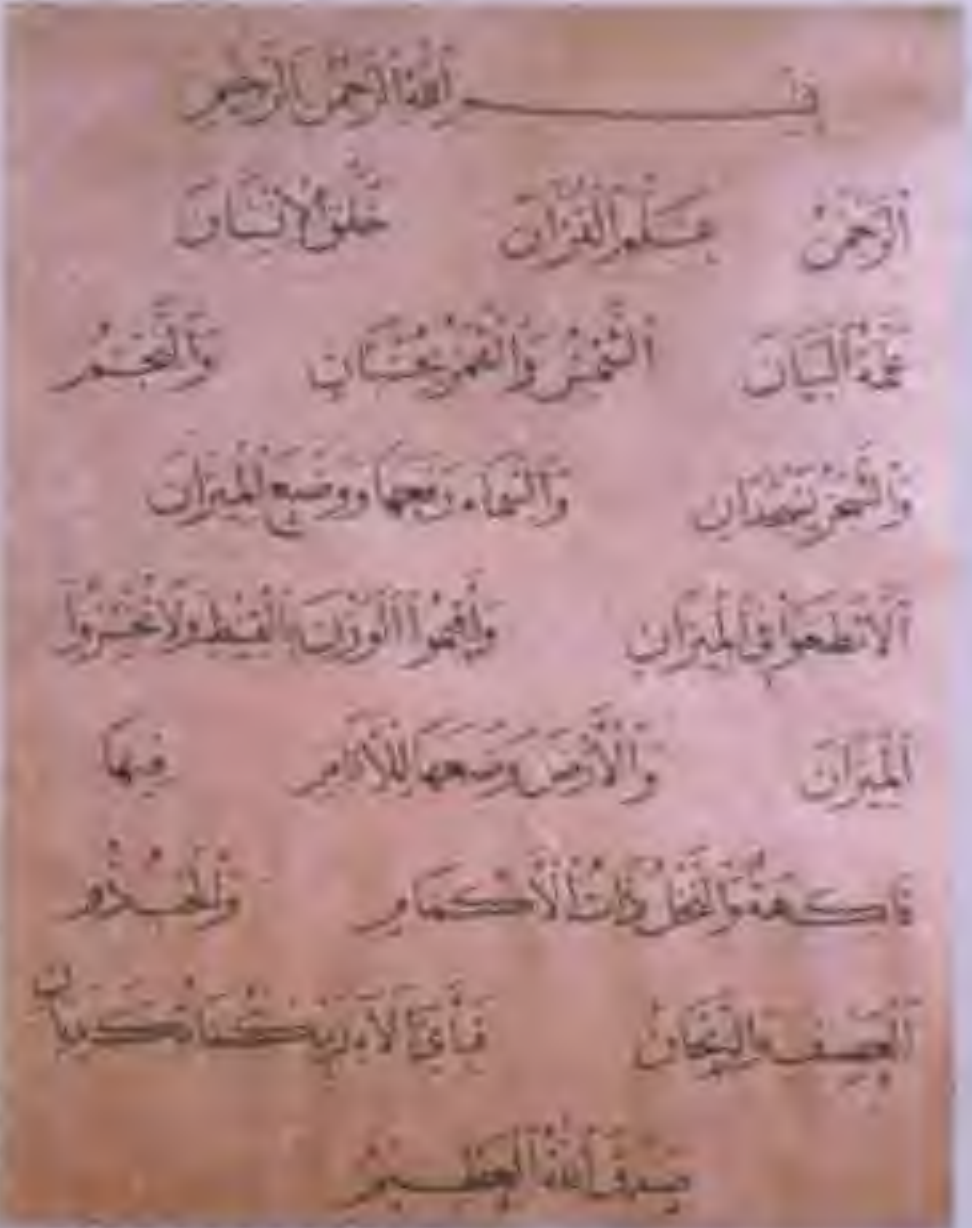 بسم الله الرحمن الرحيم
الرَّحْمَنُ عَلَّمَ الْقُرْآنَ خَلَقَ الْإِنْسَانَ
عَلَّمَهُ الْبَيَانَ الشَّمْسُ وَالْقَمَرُ بِحُسْبَانٍ وَالنَّجْمُ
وَالشَّجَرُ يَسْجُدَانِ وَالسَّمَاءَ رَفَعَهَا وَوَضَعَ الْمِيزَانَ
أَلَّا تَطْغَوْا فِي الْمِيزَانِ وَأَقِيمُوا الْوَزْنَ بِالْقِسْطِ وَلَا تُخْسِرُوا
الْمِيزَانَ وَالْأَرْضَ وَضَعَهَا لِلْأَنَامِ فِيهَا
فَاكِهَةٌ وَالنَّخْلُ ذَاتُ الْأَكْمَامِ وَالْحَبُّ ذُو
الْعَصْفِ وَالرَّيْحَانُ فَبِأَيِّ آلَاءِ رَبِّكُمَا تُكَذِّبَانِ
صدق الله العظيم